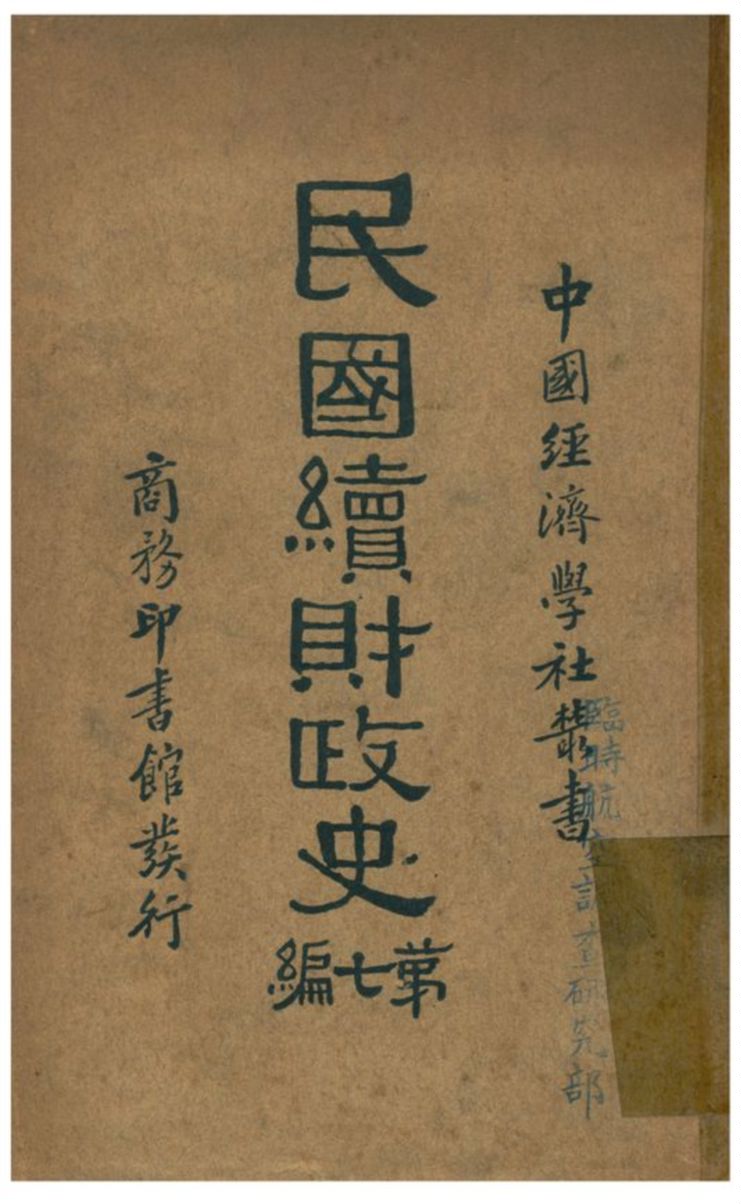 中國經濟學社叢書
民國續財政史
第七編
商務印書館發行
臨時航空調查研究部